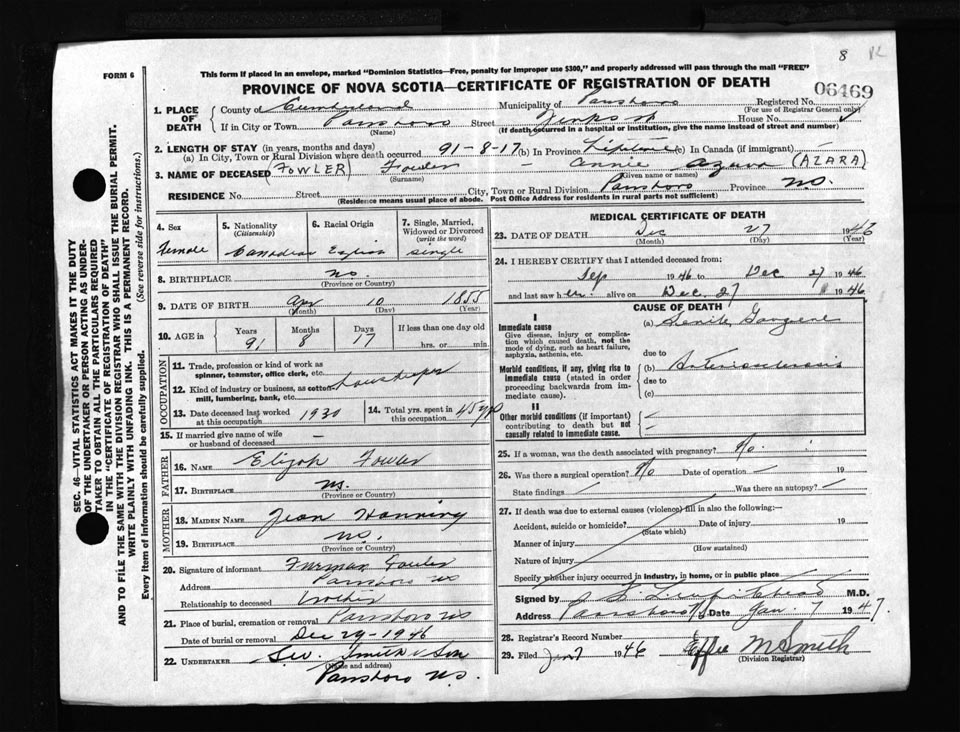 8
FORM 6
This form if placed in an envelope, marked "Dominion Statistics—Free, penalty for improper use $300," and properly addressed will pass through the mail "FREE"
PROVINCE OF NOVA SCOTIA—CERTIFICATE OF REGISTRATION OF DEATH
06469
1. PLACE OF DEATH
County of Cumberland Municipality of Parrsboro Registered No.
(For use of Registrar General only)
If in City or Town Parrsboro Street House No.
(Name) (If death occurred in a hospital or institution, give the name instead of street and number)
2. LENGTH OF STAY (in years, months and days)
(a) In City, Town or Rural Division where death occurred 91-8-17 (b) In Province Lifetime (c) In Canada (if immigrant)
3. NAME OF DECEASED (FOWLER) Fowler - Annie Azara (AZARA)
(Surname) (Given name or names)
RESIDENCE No. Street City, Town or Rural Division Parrsboro Province N.S.
(Residence means usual place of abode. Post Office Address for residents in rural parts not sufficient)
SEC. 46—VITAL STATISTICS ACT MAKES IT THE DUTY
OF THE UNDERTAKER OR PERSON ACTING AS UNDER-
TAKER TO OBTAIN ALL THE PARTICULARS REQUIRED
IN THE "CERTIFICATE OF REGISTRATION OF DEATH"
AND TO FILE THE SAME WITH THE DIVISION REGISTRAR WHO SHALL ISSUE THE BURIAL PERMIT.
WRITE PLAINLY WITH UNFADING INK. THIS IS A PERMANENT RECORD.
Every item of information should be carefully supplied. (See reverse side for instructions.)
4. Sex 5. Nationality (Citizenship) 6. Racial Origin 7. Single, Married, Widowed or Divorced (write the word)
Female Canadian English Single
8. BIRTHPLACE N.S.
(Province or Country)
9. DATE OF BIRTH Apr 10 1855
(Month) (Day) (Year)
10. AGE in Years Months Days If less than one day old
91 8 17 hrs. or min.
OCCUPATION
11. Trade, profession or kind of work as
spinner, teamster, office clerk, etc. housekeeper
12. Kind of industry or business, as cotton
mill, lumbering, bank, etc.
13. Date deceased last worked
at this occupation 1930
14. Total yrs. spent in
this occupation 45 yrs
15. If married give name of wife
or husband of deceased —
FATHER
16. NAME Elijah Fowler
17. BIRTHPLACE N.S.
(Province or Country)
MOTHER
18. MAIDEN NAME Jean
19. BIRTHPLACE N.S.
(Province or Country)
20. Signature of informant Furman Fowler
Address Parrsboro NS
Relationship to deceased brother
21. Place of burial, cremation or removal Parrsboro NS
Date of burial or removal Dec 29-1946
22. UNDERTAKER Smith & Son
(Name and address)
Parrsboro N.S.
MEDICAL CERTIFICATE OF DEATH
23. DATE OF DEATH Dec 27 1946
(Month) (Day) (Year)
24. I HEREBY CERTIFY that I attended deceased from:
Sep 1946 to Dec 27 1946
and last saw her alive on Dec. 27 1946
CAUSE OF DEATH
I
Immediate cause
Give disease, injury or complica-
tion which caused death, not the
mode of dying, such as heart failure,
asphyxia, asthenia, etc.
(a) Senile Gangrene
due to
Morbid conditions, if any, giving rise to
immediate cause (stated in order
proceeding backwards from im-
mediate cause).
(b) Arteriosclerosis
due to
(c)
II
Other morbid conditions (if important)
contributing to death but not
causally related to immediate cause.
25. If a woman, was the death associated with pregnancy? No
26. Was there a surgical operation? No Date of operation — 19
State findings — Was there an autopsy? —
27. If death was due to external causes (violence) fill in also the following:—
Accident, suicide or homicide? Date of injury 19
(State which)
Manner of injury
(How sustained)
Nature of injury
Specify whether injury occurred in industry, in home, or in public place
Signed by M.D.
Address Parrsboro Date Jan. 7 1947.
28. Registrar's Record Number
29. Filed Jan 7 1946 Effie M Smith
(Division Registrar)